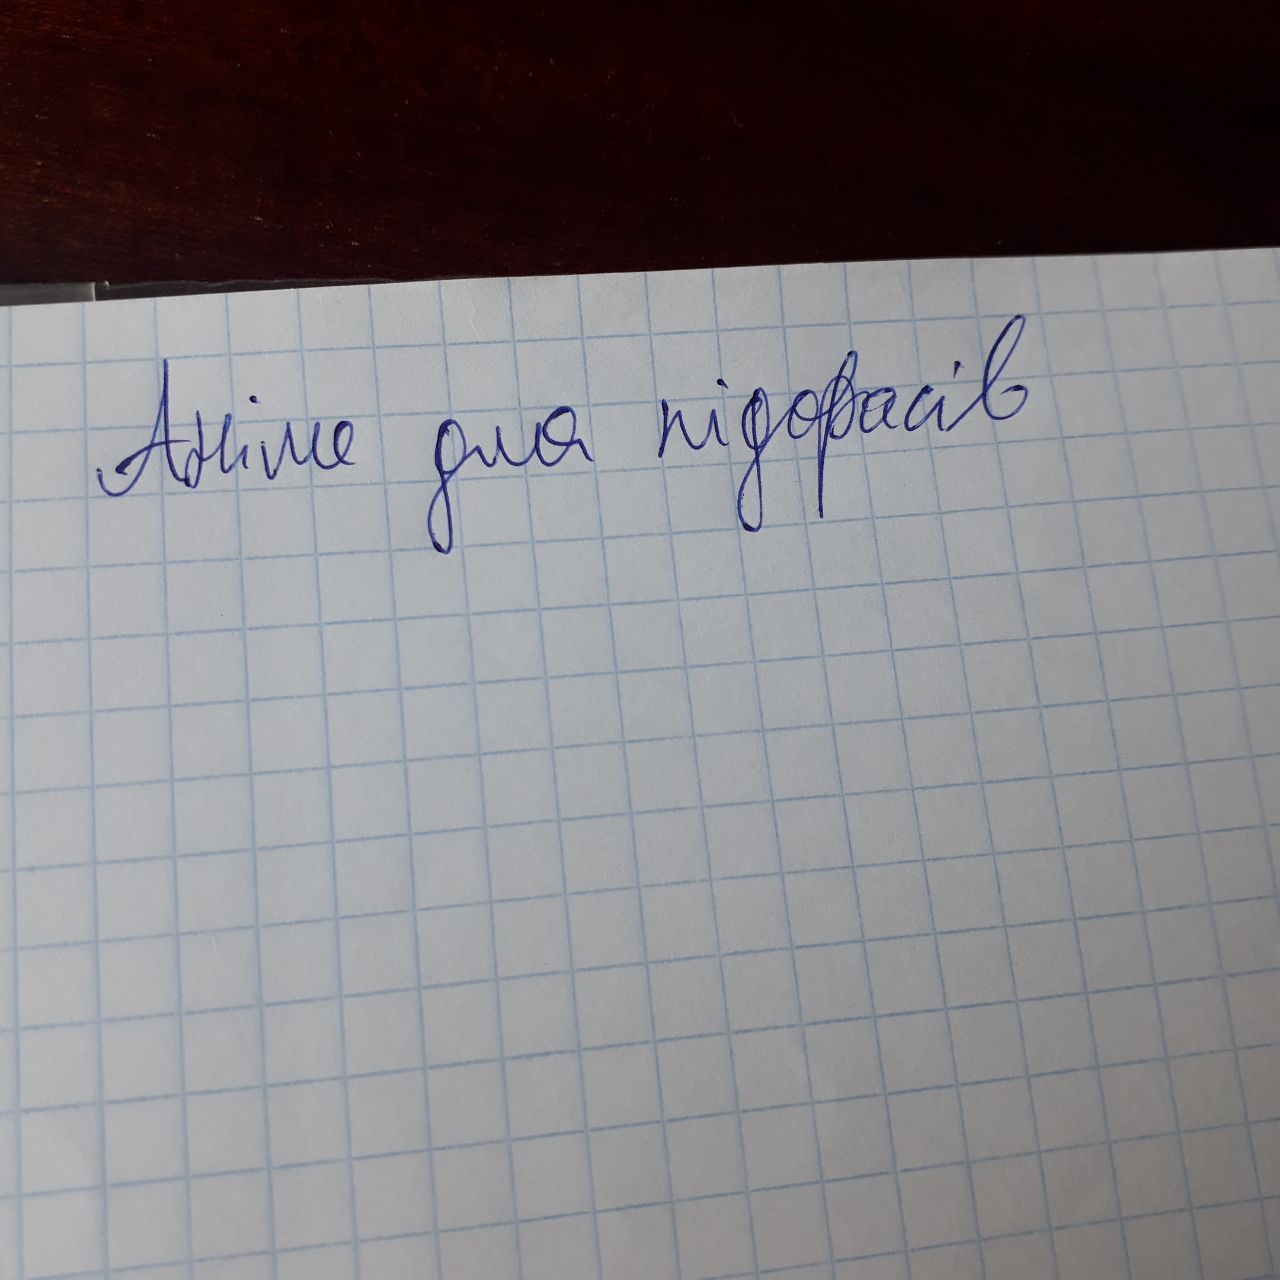 Аніме для підорасів